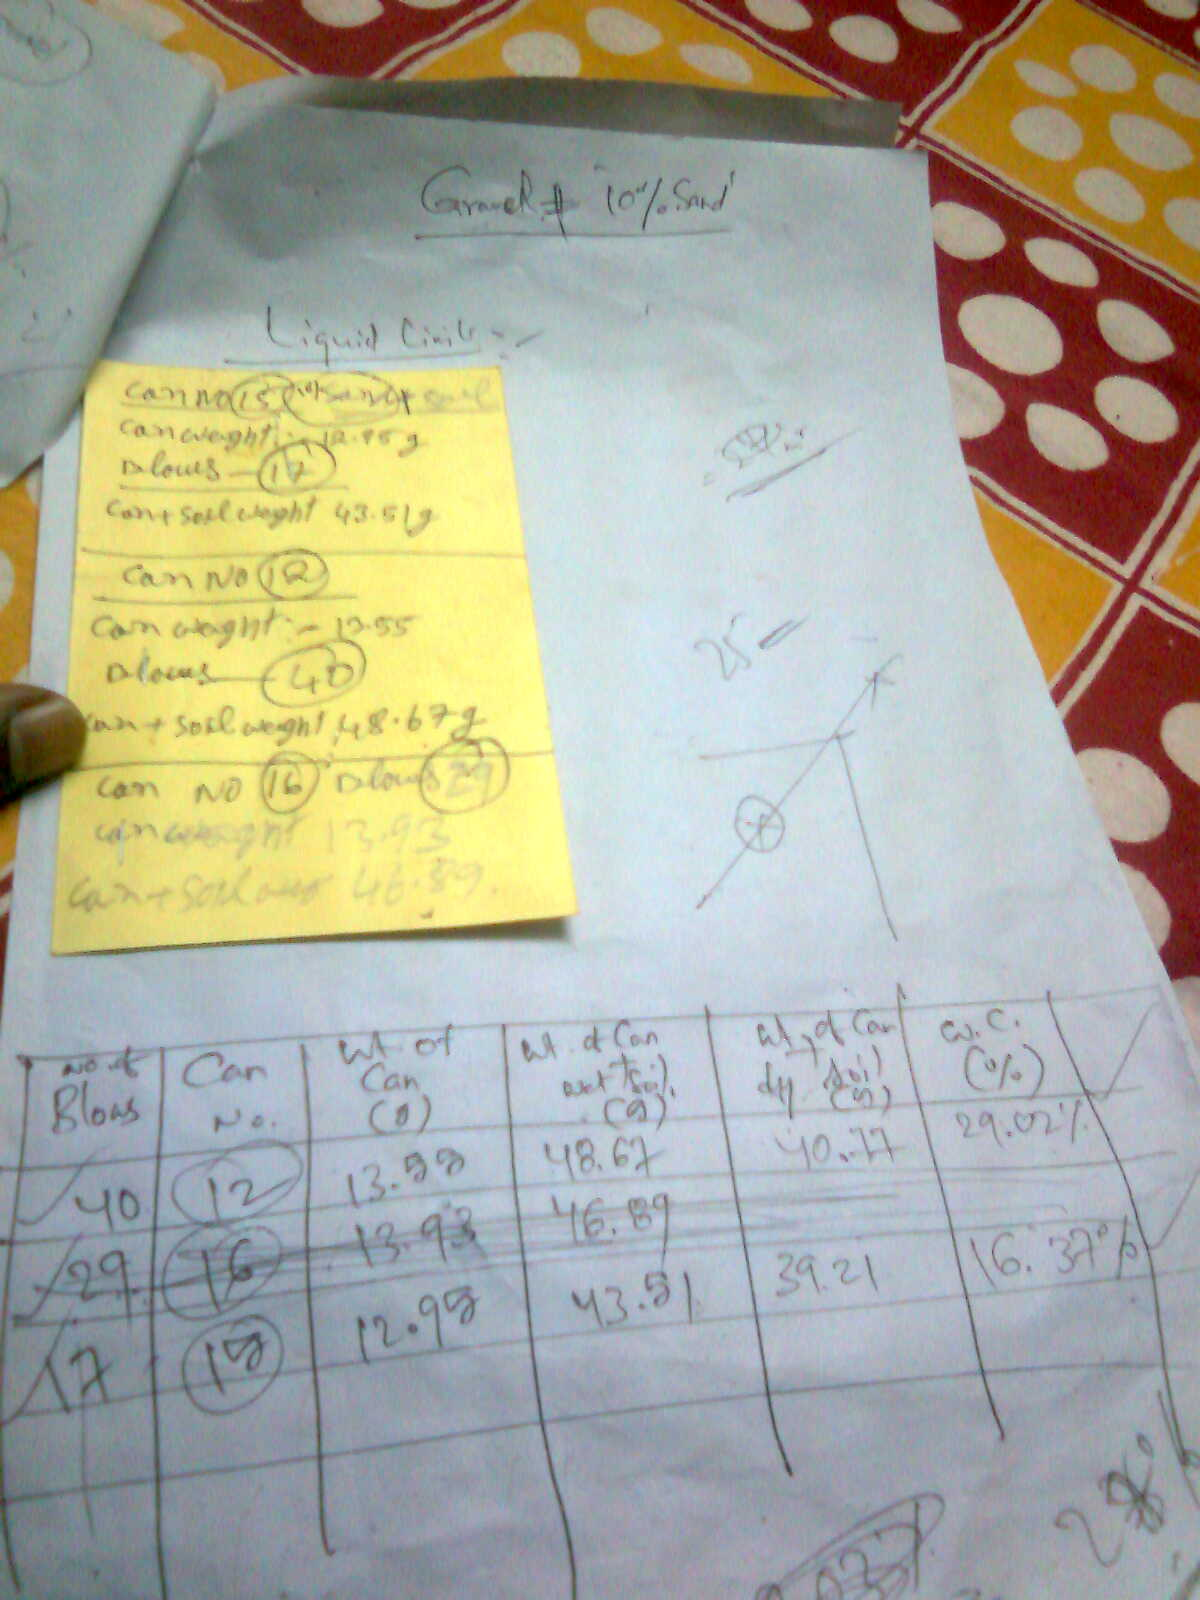 Gravel # 10% Sand
Liquid Limit :-
Can No 15 10% Sand + Soil
Can weight :- 12.95g
Blows - 17
Can + Soil weight 43.51g
Can No 12
Can weight :- 13.55
Blows - 40
Can + Soil weight 48.67g
Can No 16 Blows 29
Can weight 13.93
Can + Soil 46.89
25
No. of Blows
Can No.
Wt. of Can (g)
Wt. of Can + wet soil (g)
Wt. of Can + dry soil (g)
W.C. (%)
40 12 13.55 48.67 40.77 29.02%
29 16 13.93 46.89
17 15 12.95 43.51 39.21 16.37%